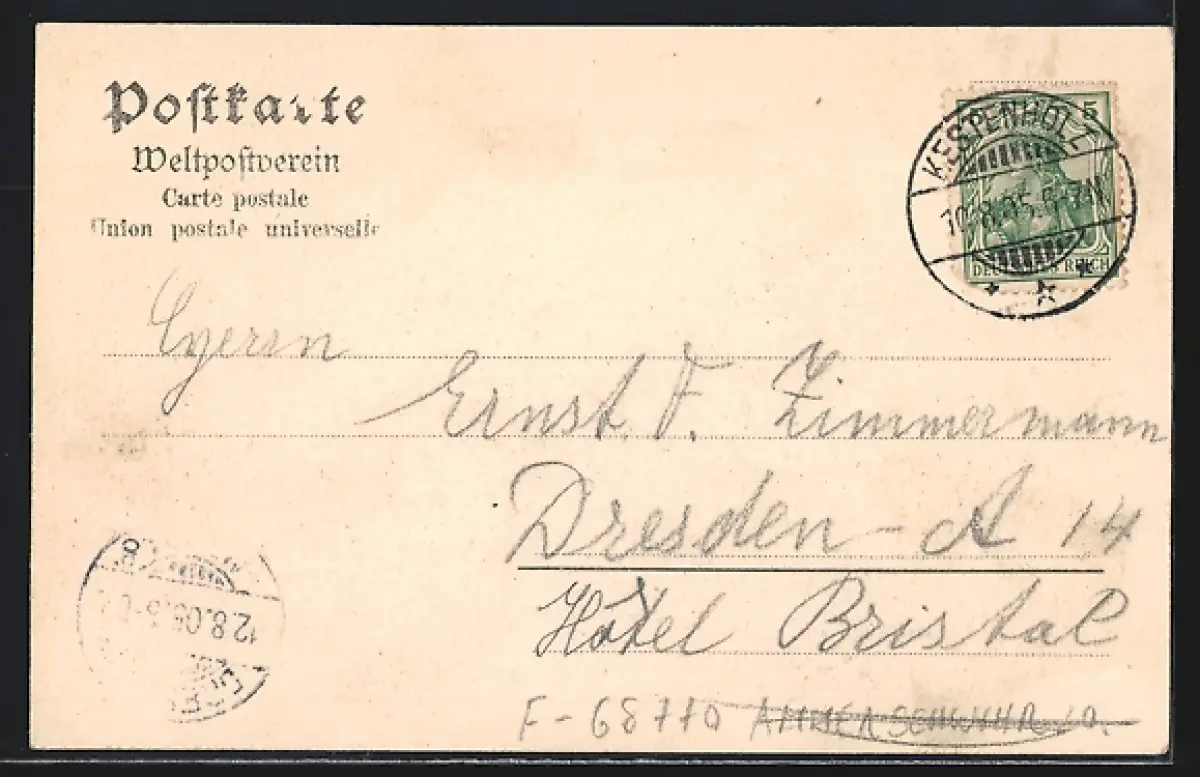 Postkarte
Weltpostverein
Carte postale
Union postale universelle
5
KESTENHOLZ
10.8.05.
DEUTSCHES REICH
Herrn
Ernst. F. Zimmermann
Dresden-A 14
Hôtel Bristol
12.8.05.
F-68770